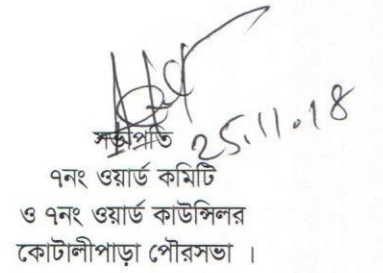 সভাপতি
25.11.18
৭নং ওয়ার্ড কমিটি
ও ৭নং ওয়ার্ড কাউন্সিলর
কোটালীপাড়া পৌরসভা ।